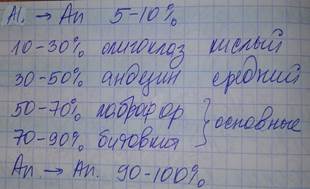 Al. → An 5-10%
10-30% олигоклаз кислый
30-50% андезин средний
50-70% лабрадор } основные
70-90% битовния
An → An. 90-100%